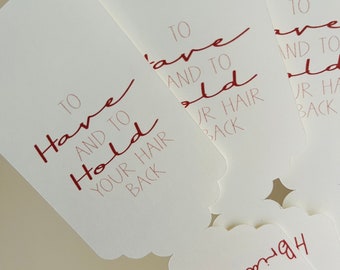 TO
Have
AND TO
Hold
YOUR HAIR
BACK
TO
Have
AND TO
Hold
YOUR HAIR
BACK
AND TO
Hold
HAIR